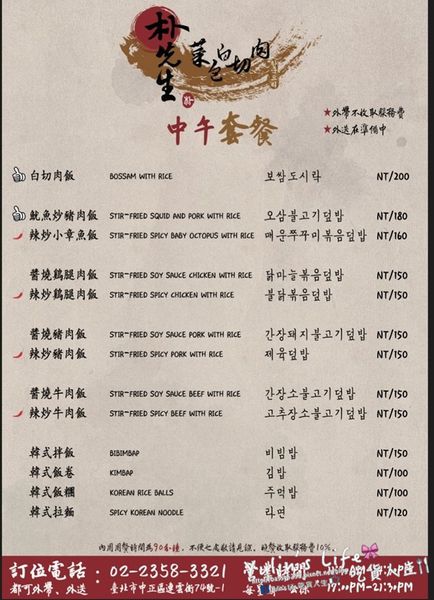 朴先生
菜包白切肉
中午套餐
★外帶不收取服務費
★外送在準備中
白切肉飯 BOSSAM WITH RICE 보쌈도시락 NT/200
魷魚炒豬肉飯 STIR-FRIED SQUID AND PORK WITH RICE 오삼불고기덮밥 NT/180
辣炒小章魚飯 STIR-FRIED SPICY BABY OCTOPUS WITH RICE 매운쭈꾸미볶음덮밥 NT/160
醬燒鷄腿肉飯 STIR-FRIED SOY SAUCE CHICKEN WITH RICE 닭마늘볶음덮밥 NT/150
辣炒鷄腿肉飯 STIR-FRIED SPICY CHICKEN WITH RICE 불닭볶음덮밥 NT/150
醬燒豬肉飯 STIR-FRIED SOY SAUCE PORK WITH RICE 간장돼지불고기덮밥 NT/150
辣炒豬肉飯 STIR-FRIED SPICY PORK WITH RICE 제육덮밥 NT/150
醬燒牛肉飯 STIR-FRIED SOY SAUCE BEEF WITH RICE 간장소불고기덮밥 NT/150
辣炒牛肉飯 STIR-FRIED SPICY BEEF WITH RICE 고추장소불고기덮밥 NT/150
韓式拌飯 BIBIMBAP 비빔밥 NT/150
韓式飯卷 KIMBAP 김밥 NT/100
韓式飯糰 KOREAN RICE BALLS 주먹밥 NT/100
韓式拉麵 SPICY KOREAN NOODLE 라면 NT/120
內用用餐時間為90分鐘，不便之處敬請見諒，
服務費10%。
訂位電話：02-2358-3321
都可外帶、外送 臺北市中正區連雲街74號-1
Life
17:00PM-21:30PM